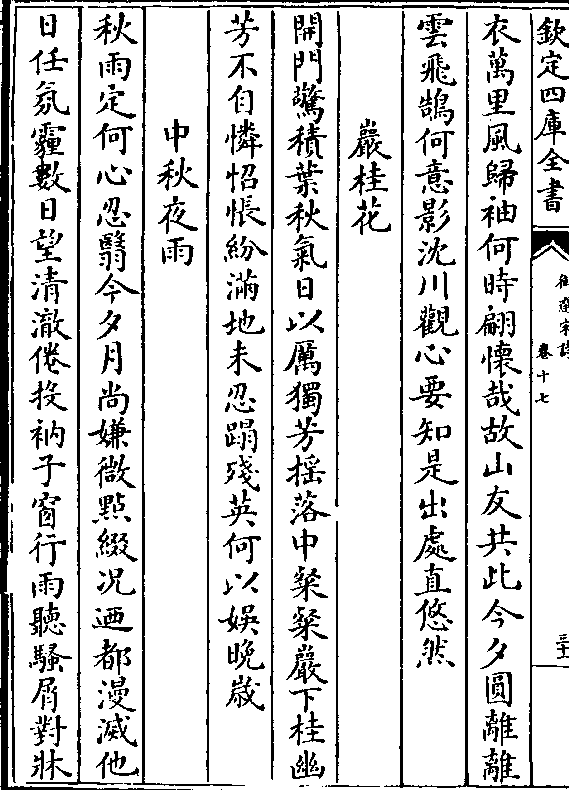 欽定四庫全書
御選宋詩
卷十七
三十一
衣萬里風歸袖何時翩懷哉故山友共此今夕圓離離
雲飛鵠何意影沈川觀心要知是出處直悠然
巖桂花
開門驚積葉秋氣日以厲獨芳揺落中粲粲巖下桂幽
芳不自憐怊悵紛滿地未忍蹋殘英何以娯晩歳
中秋夜雨
秋雨定何心忍翳今夕月尚嫌微點綴况迺都漫滅他
日任氛霾數日望清澈倦投衲子窗行雨聽騷屑對牀